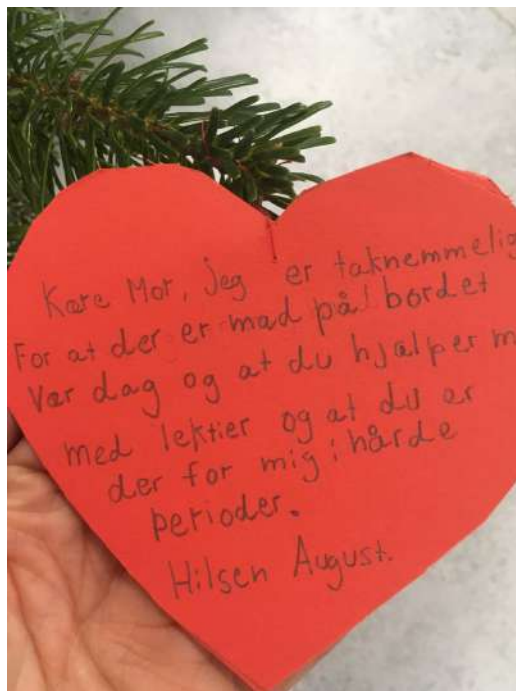 Kære Mor, jeg er taknemmelig
For at der er mad på bordet
Vær dag og at du hjælper m
med lektier og at du er
der for mig i hårde
perioder.
Hilsen August.